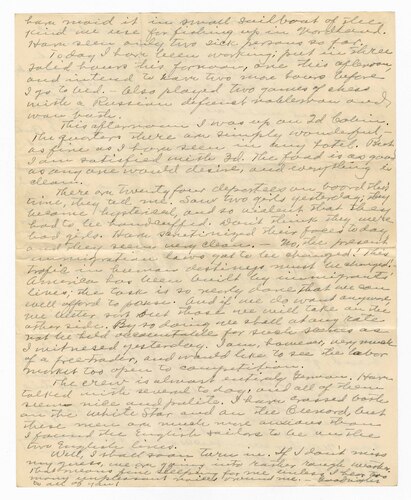 had made it in small sailboat of the
kind we use for fishing up in
Have seen only two sick persons so far.
Today I have been working; put in three
solid hours this forenoon, one this afternoon
and intend to have two more hours before
I go to bed. — Also played two games of chess
with a Russian nobleman and
won both.
This afternoon I was up on 2d Cabin.
The quarters there are simply wonderful,—
as fine as I have seen in any hotel. But
I am satisfied with 3d. The food is as good
as any one would desire, and everything is
clean.
There are twenty four deportees on board this
time, they tell me. Saw two girls yesterday; they
became hysterical, and so violent that they
had to be handcuffed. Don't think they were
bad girls. Have scrutinized their faces today
and they seem very clean. — No, the present
immigration laws got to be changed! This
trafic in human destinys must be changed!
America has been built by immigrants'
lives, the task is so nearly done that we can
well afford to pause. And if we do want anyone,
we better sort out those we will take on the
other side. By so doing we shall at any rate
not be held accountable for such scenes as
I witnessed yesterday. I am, however, very much
of a free trader, and would like to see the labor
market too open to competition.
The crew is almost entirely German. Have
talked with several to day, and all of them
seems nice and polite. I have crossed both
on the White Star and on the Cunard, but
these men are much more anxious than
I found the English sailors to be on the
two English lines.
Well, I had soon turn in. If I don't miss
my guess, we are going into rather rough weather.
That means fine sleeping for me, unless I hear too
many unpleasant noises around me.
to all of you!